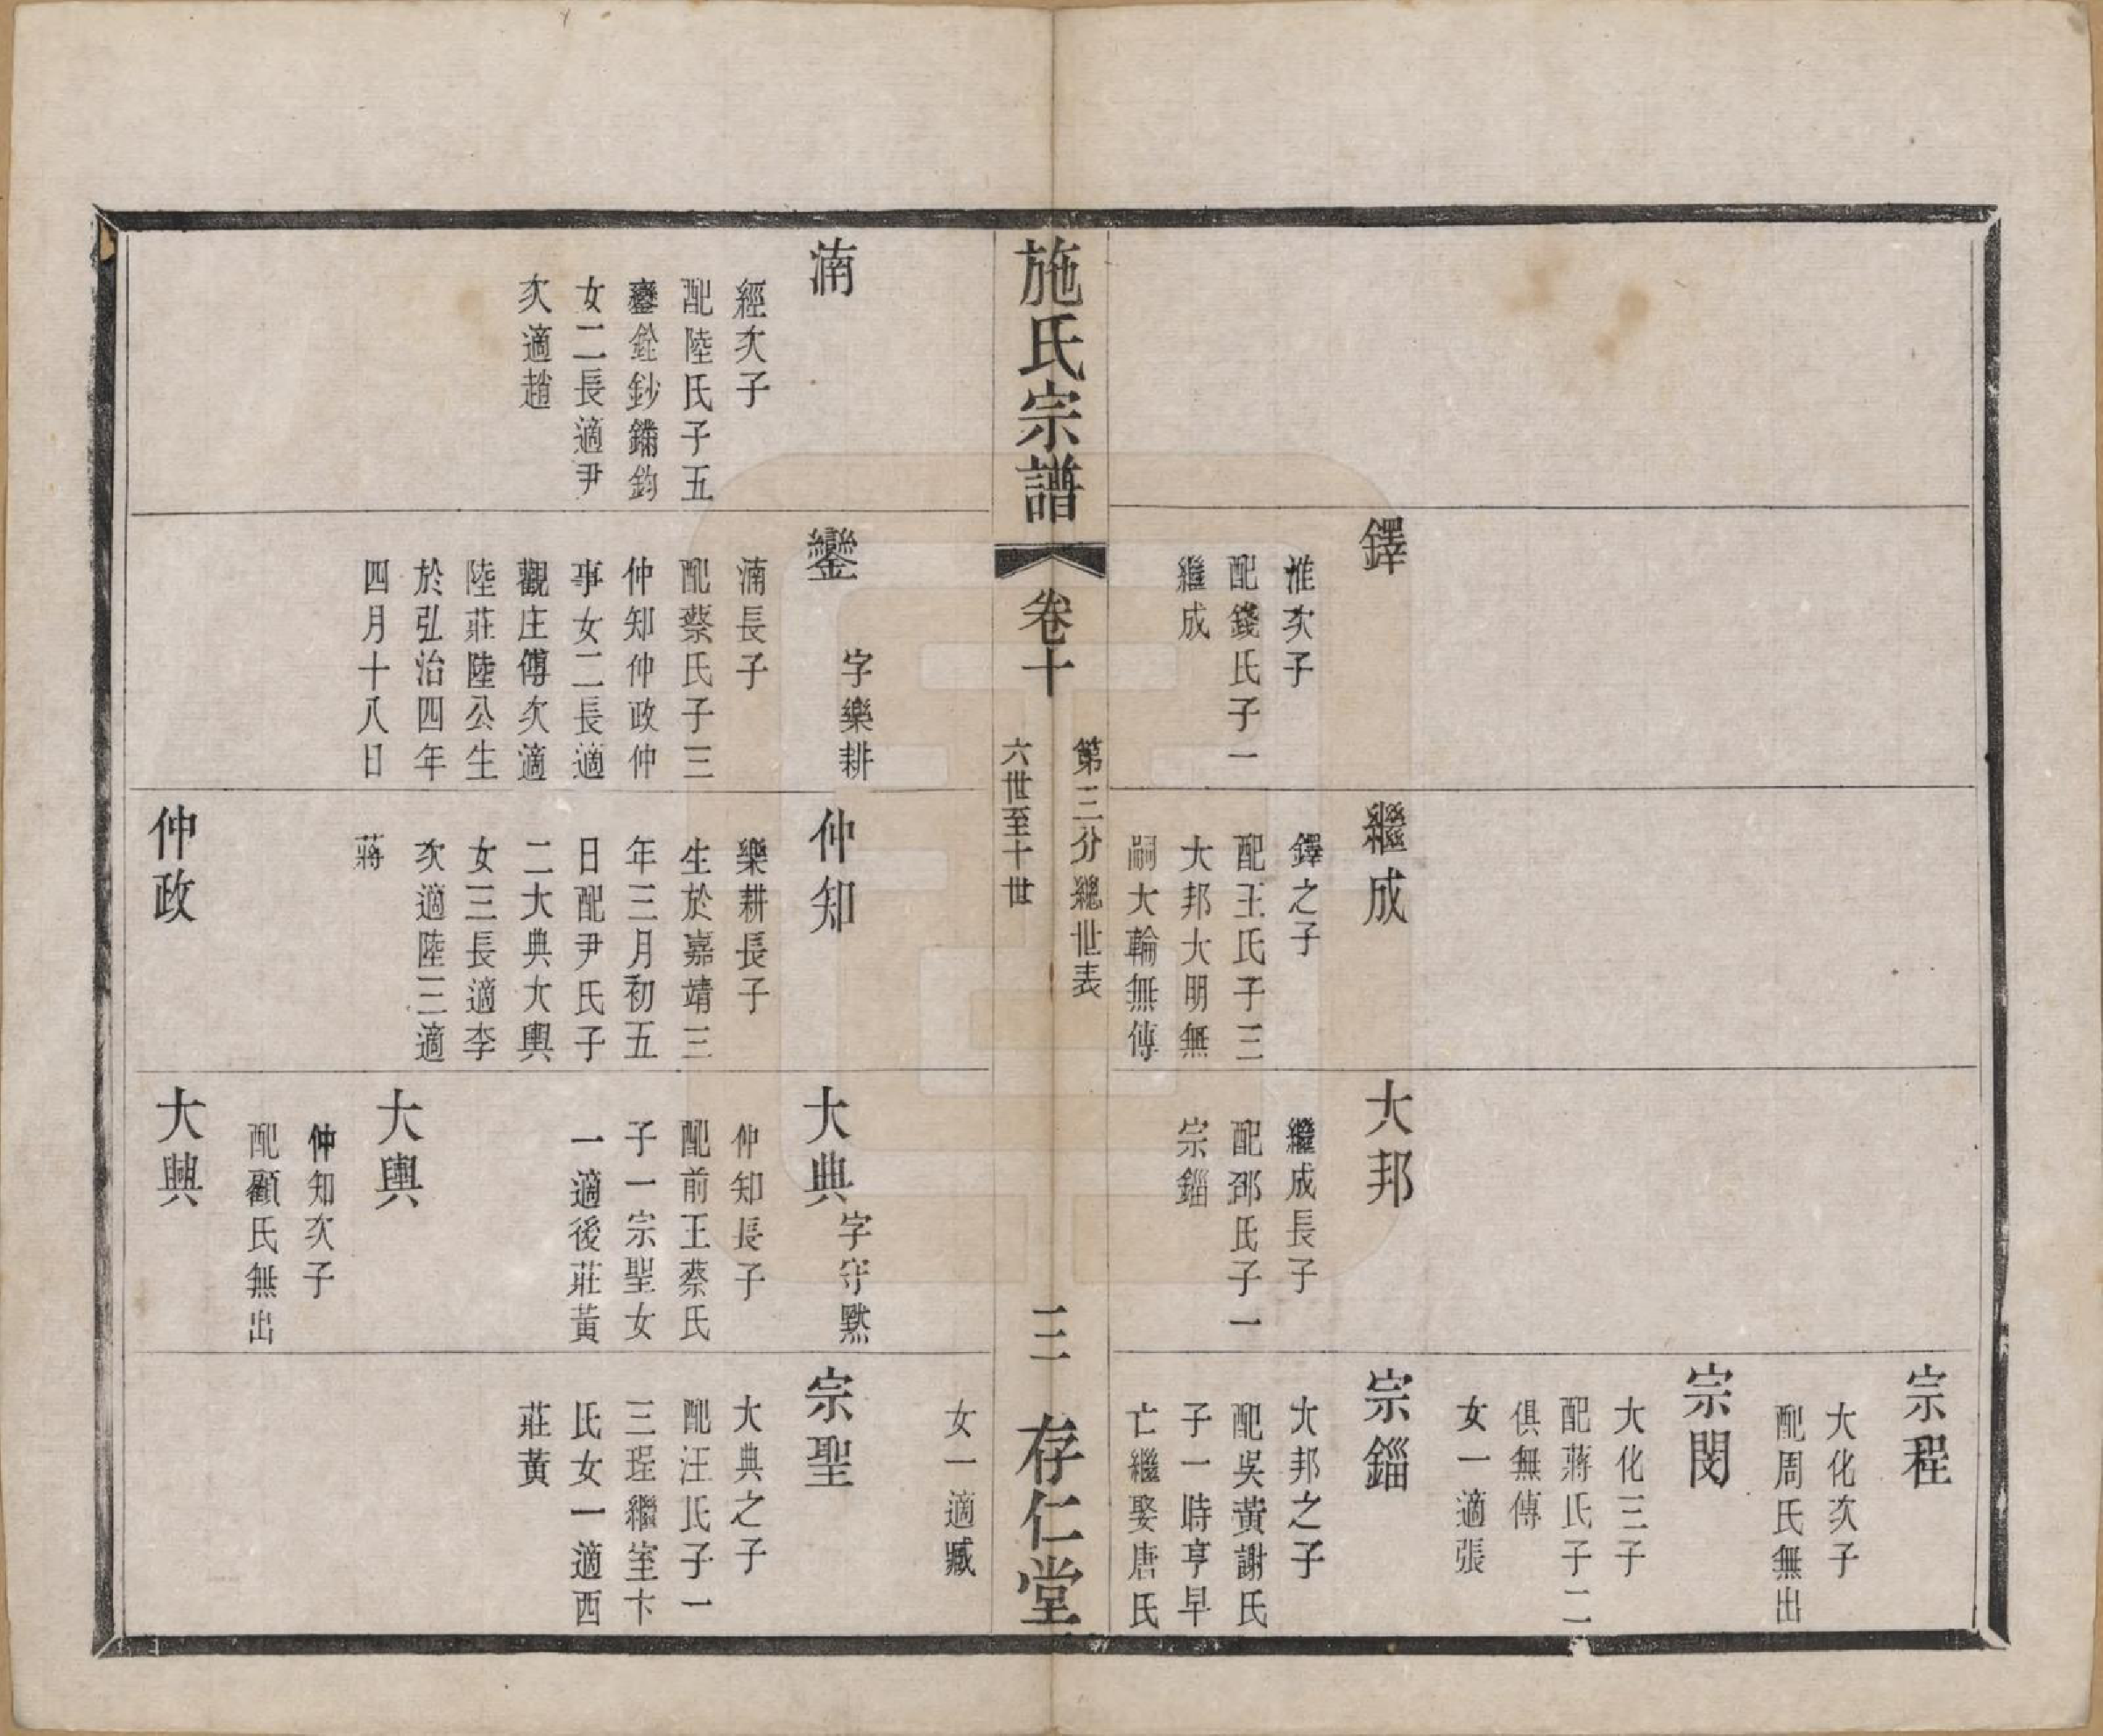 鐸
淮次子
配錢氏子一
繼成
繼成
鐸之子
配王氏子三
大邦大明無
嗣大輪無傳
大邦
繼成長子
配邵氏子一
宗鎦
宗程
大化次子
配周氏無出
宗閔
大化三子
配蔣氏子二
俱無傳
女一適張
宗鎦
大邦之子
配吳黃謝氏
子一時亨早
亡繼娶唐氏
施氏宗譜
卷十
第三分總世表
六世至十世
三
存仁堂
湳
經次子
配陸氏子五
鑾銓鈔鏞鈞
女二長適尹
次適趙
鑾
字樂耕
湳長子
配蔡氏子三
仲知仲政仲
事女二長適
觀庄傅次適
陸莊陸公生
於弘治四年
四月十八日
仲知
樂耕長子
生於嘉靖三
年三月初五
日配尹氏子
二大典大輿
女三長適李
次適陸三適
蔣
仲政
大典
字守默
仲知長子
配前王蔡氏
子一宗聖女
一適後莊黃
大輿
仲知次子
配顧氏無出
大興
女一適臧
宗聖
大典之子
配汪氏子一
三珵繼室卞
氏女一適西
莊黃